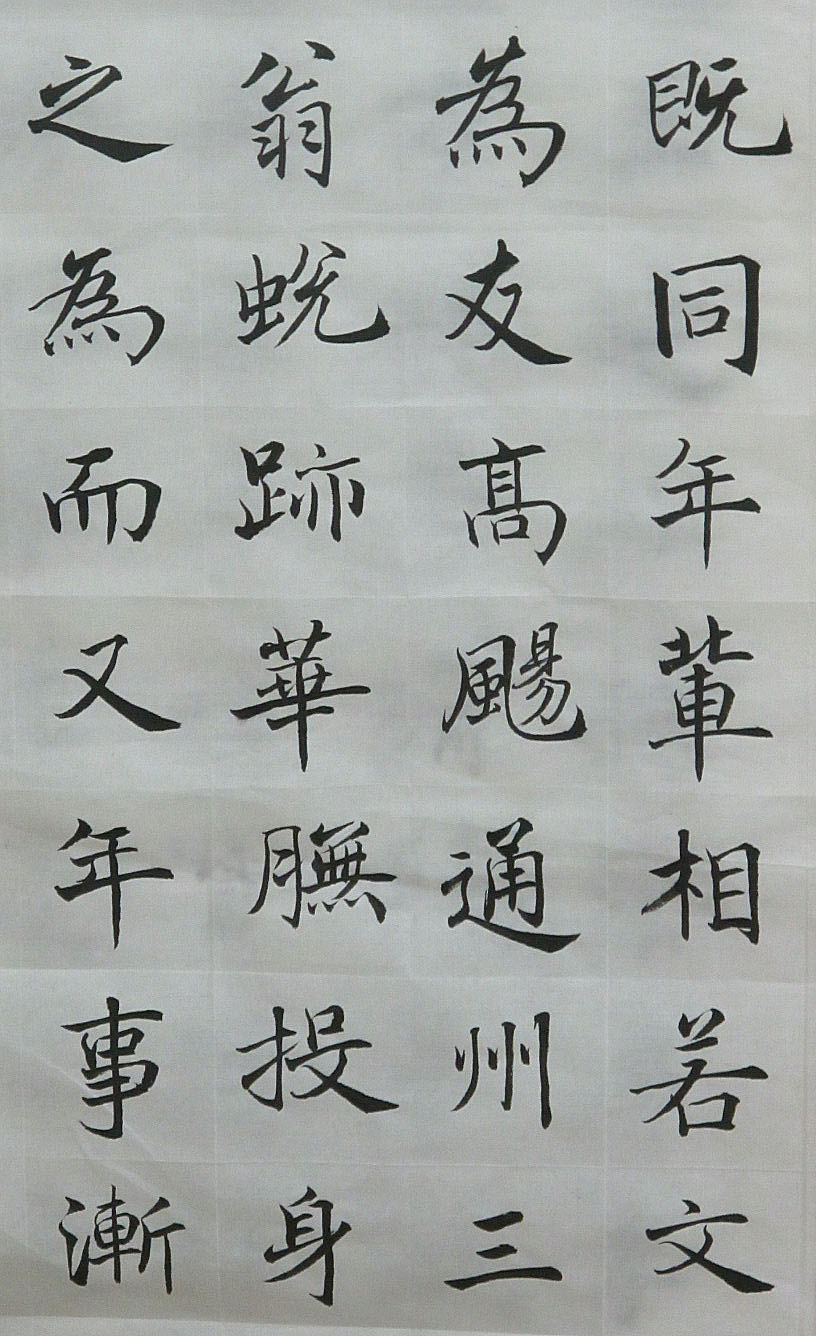 既同年輩相若文
為友高颺通州三
翁蛻跡華膴投身
之為而又年事漸